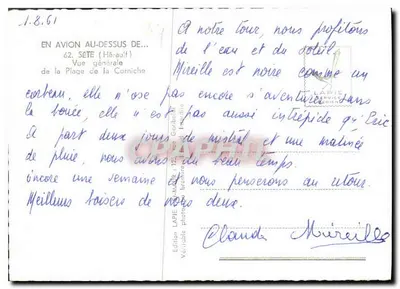 1.8.61
EN AVION AU-DESSUS DE...
62. SÈTE (Hérault)
Vue générale
de la Plage de la Corniche
A notre tour, nous profitons
de l'eau et du soleil.
Mireille est noire comme un
corbeau. elle n'ose pas encore s'aventurer sans
la bouée, elle n'est pas aussi intrépide qu'Eric
A part deux jours de mistral et une matinée
de pluie, nous avons du beau temps.
encore une semaine et nous penserons au retour.
Meilleurs baisers de nous deux.
Claude Mireille
LAPIE
Edition LAPIE